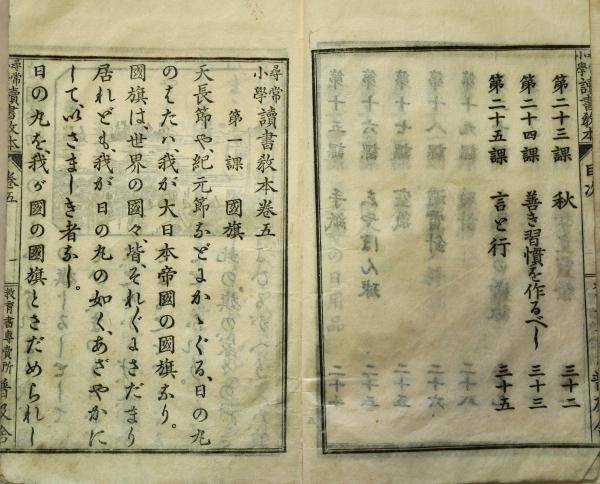 尋常小學讀書教本 目次
第二十三課 秋 三十二
第二十四課 善き習慣を作るべし 三十三
第二十五課 言と行 三十五
尋常小學讀書教本卷五
第一課 國旗
天長節や、紀元節などにかゝぐる、日の丸
のはたハ、我が大日本帝國の國旗なり。
國旗は、世界の國々、皆それ〲にさだまり
居れども、我が日の丸の如く、あざやかに
して、いさましき者なし。
日の丸を、我が國の國旗とさだめられし
尋常小學讀書教本 卷五 一 教育書專賣所 普及舍